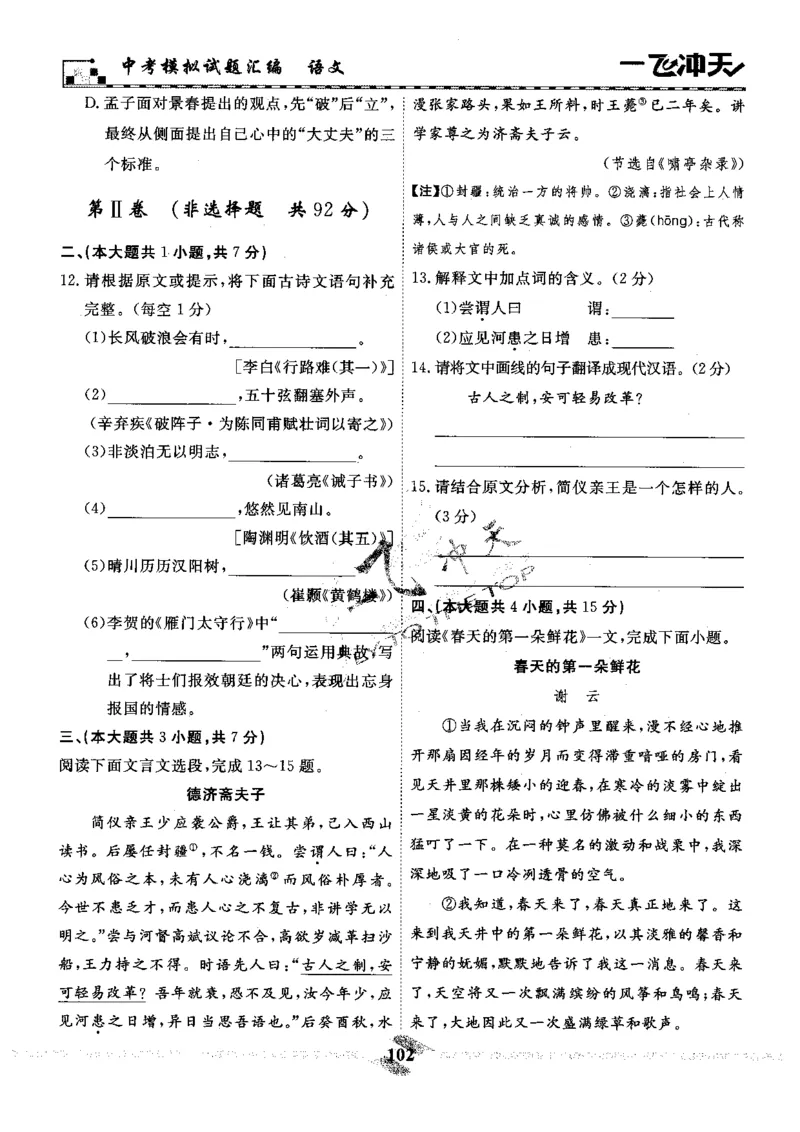 中考模拟试题汇编 语文
一飞冲天
D.孟子面对景春提出的观点,先“破”后“立”,
最终从侧面提出自己心中的“大丈夫”的三
个标准。
第Ⅱ卷 (非选择题 共92分)
二、(本大题共1小题,共7分)
12.请根据原文或提示,将下面古诗文语句补充
完整。(每空1分)
(1)长风破浪会有时,____________。
[李白《行路难(其一)》]
(2)____________,五十弦翻塞外声。
(辛弃疾《破阵子·为陈同甫赋壮词以寄之》)
(3)非淡泊无以明志,____________。
(诸葛亮《诫子书》)
(4)____________,悠然见南山。
[陶渊明《饮酒(其五)》]
(5)晴川历历汉阳树,____________。
(崔颢《黄鹤楼》)
(6)李贺的《雁门太守行》中“____________
__,____________”两句运用典故,写
出了将士们报效朝廷的决心,表现出忘身
报国的情感。
三、(本大题共3小题,共7分)
阅读下面文言文选段,完成13~15题。
德济斋夫子
简仪亲王少应袭公爵,王让其弟,己入西山
读书。后屡任封疆①,不名一钱。尝谓人曰:“人
心为风俗之本,未有人心浇漓②而风俗朴厚者。
今世不患乏才,而患人心之不复古,非讲学无以
明之。”尝与河督高斌议论不合,高欲岁减革扫沙
船,王力持之不得。时语先人曰:“古人之制,安
可轻易改革?吾年就衰,恐不及见,汝今年少,应
见河患之日增,异日当思吾语也。”后癸酉秋,水
漫张家路头,果如王所料,时王薨③已二年矣。讲
学家尊之为济斋夫子云。
(节选自《啸亭杂录》)
【注】①封疆:统治一方的将帅。②浇漓:指社会上人情
薄,人与人之间缺乏真诚的感情。③薨(hōng):古代称
诸侯或大官的死。
13.解释文中加点词的含义。(2分)
(1)尝谓人曰 谓:______
(2)应见河患之日增 患:______
14.请将文中画线的句子翻译成现代汉语。(2分)
古人之制,安可轻易改革?
15.请结合原文分析,简仪亲王是一个怎样的人。
(3分)
四、(本大题共4小题,共15分)
阅读《春天的第一朵鲜花》一文,完成下面小题。
春天的第一朵鲜花
谢 云
①当我在沉闷的钟声里醒来,漫不经心地推
开那扇因经年的岁月而变得滞重喑哑的房门,看
见天井里那株矮小的迎春,在寒冷的淡雾中绽出
一星淡黄的花朵时,心里仿佛被什么细小的东西
猛叮了一下。在一种莫名的激动和战栗中,我深
深地吸了一口冷冽透骨的空气。
②我知道,春天来了,春天真正地来了。这
来到我天井中的第一朵鲜花,以其淡雅的馨香和
宁静的妩媚,默默地告诉了我这一消息。春天来
了,天空将又一次飘满缤纷的风筝和鸟鸣;春天
来了,大地因此又一次盛满绿草和歌声。
102